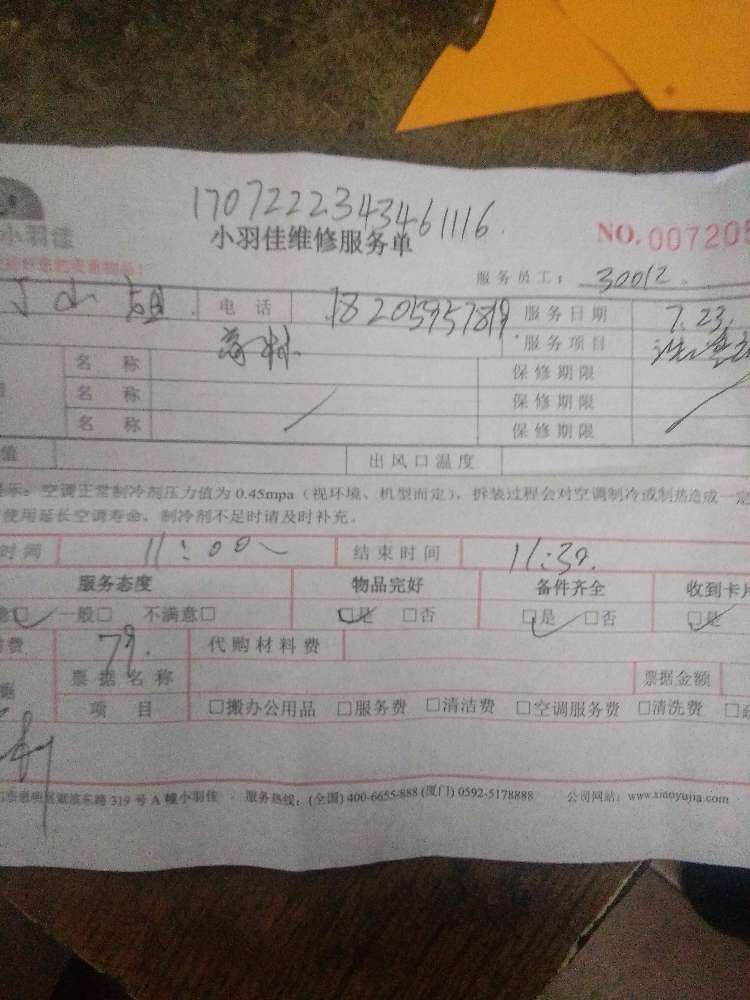 1707222343461116
小羽佳
小羽佳维修服务单
NO. 007205
服务员工: 30012
小姐 电话 18205957819 服务日期 7.23.
服务项目
名称 保修期限
名称 保修期限
名称 保修期限
值 出风口温度
示: 空调正常制冷剂压力值为 0.45mpa (视环境、机型而定), 拆装过程会对空调制冷或制热造成一定
使用延长空调寿命, 制冷剂不足时请及时补充。
时间 11:00 结束时间 11:30.
服务态度 物品完好 备件齐全 收到卡片
意□ 一般□ 不满意□ □是 □否 □是 □否 □是
费 79. 代购材料费
票据名称 票据金额
项目 □搬办公用品 □服务费 □清洁费 □空调服务费 □清洗费
东路 319 号 A 幢小羽佳 · 服务热线: (全国) 400-6655-888 (厦门) 0592-5178888 公司网站: www.xiaoyujia.com